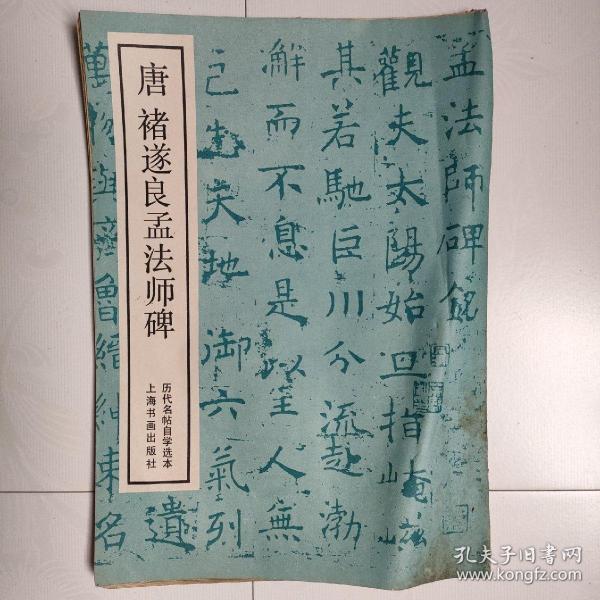 唐 褚遂良孟法师碑
历代名帖自学选本
上海书画出版社
孟法師碑銘
觀夫太陽始旦指崦嵫
其若馳巨川分流赴渤
解而不息是以至人無
己先天地御六氣列
遺
萬物與齊魯縉紳東名
孔夫子旧书网
www.kongfz.com